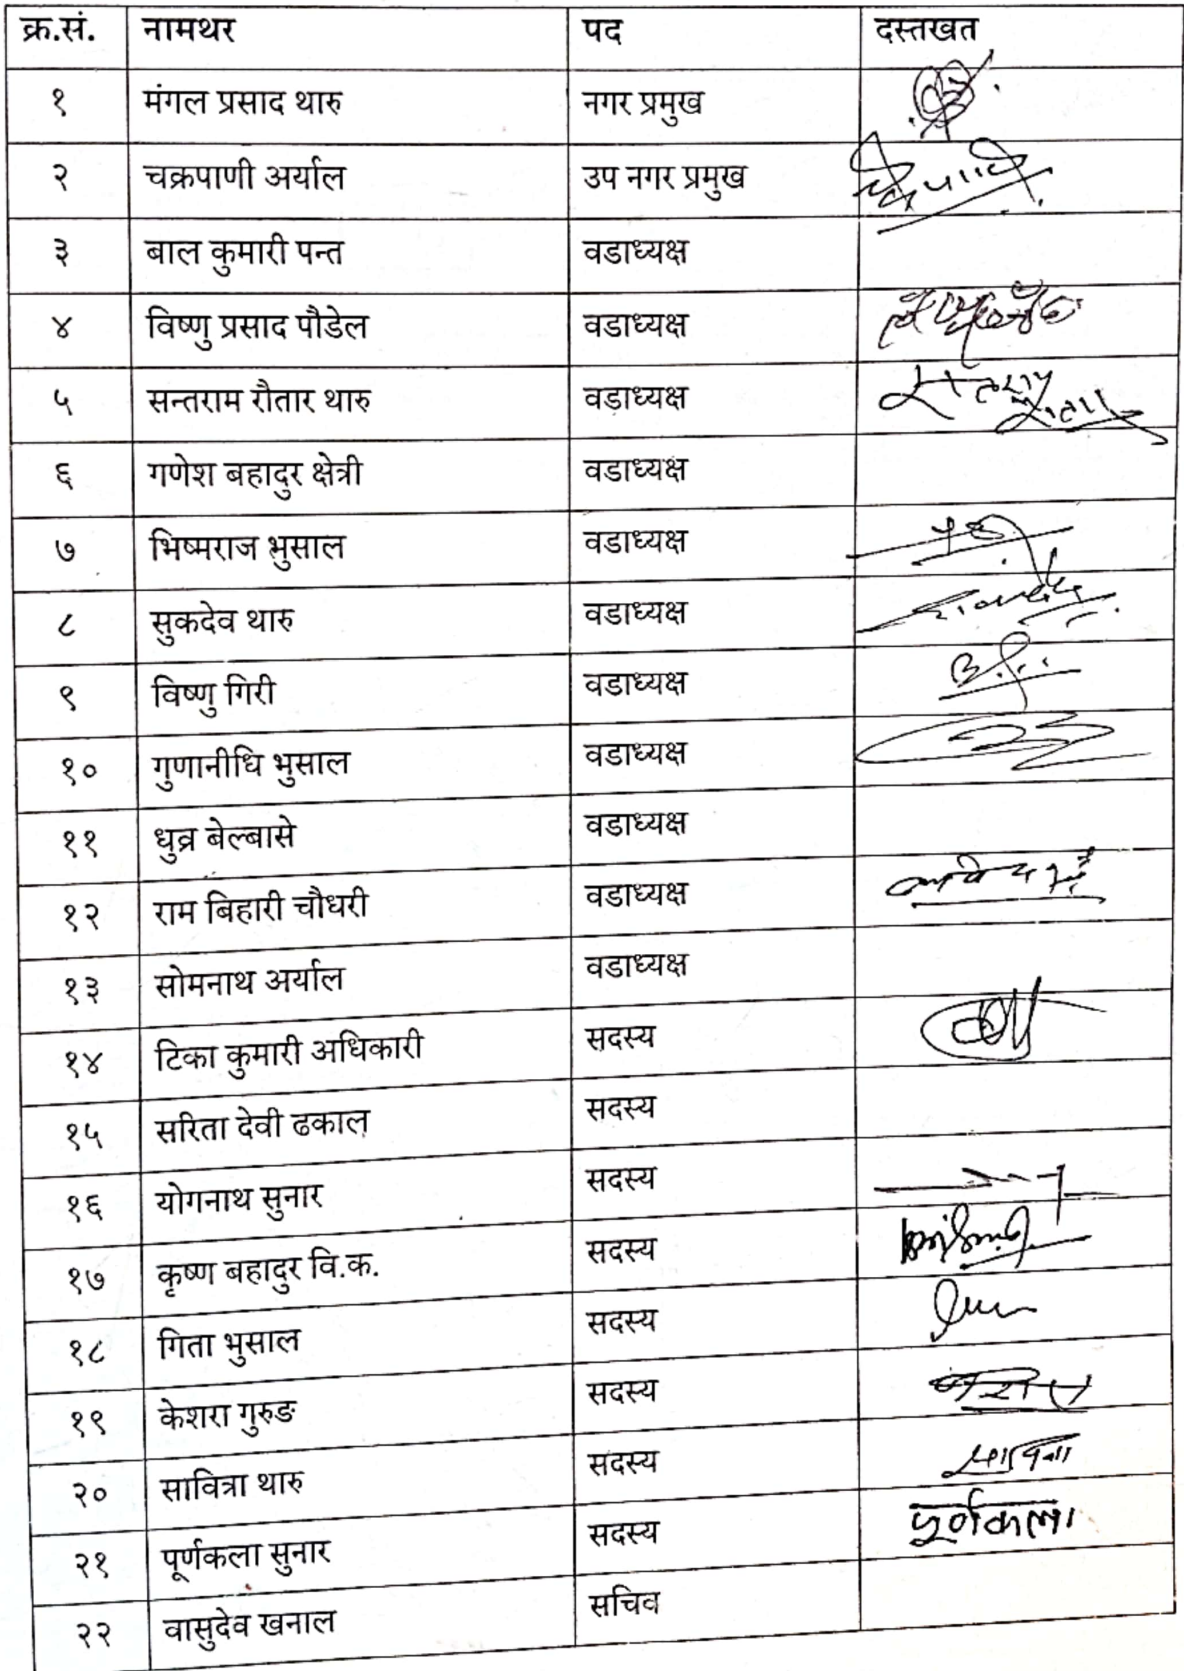 क्र.सं. नामथर पद दस्तखत
१ मंगल प्रसाद थारु नगर प्रमुख
२ चक्रपाणी अर्याल उप नगर प्रमुख
३ बाल कुमारी पन्त वडाध्यक्ष
४ विष्णु प्रसाद पौडेल वडाध्यक्ष
५ सन्तराम रौतार थारु वडाध्यक्ष
६ गणेश बहादुर क्षेत्री वडाध्यक्ष
७ भिष्मराज भुसाल वडाध्यक्ष
८ सुकदेव थारु वडाध्यक्ष
९ विष्णु गिरी वडाध्यक्ष
१० गुणानीधि भुसाल वडाध्यक्ष
११ धुव्र बेल्बासे वडाध्यक्ष
१२ राम बिहारी चौधरी वडाध्यक्ष
१३ सोमनाथ अर्याल वडाध्यक्ष
१४ टिका कुमारी अधिकारी सदस्य
१५ सरिता देवी ढकाल सदस्य
१६ योगनाथ सुनार सदस्य
१७ कृष्ण बहादुर वि.क. सदस्य
१८ गिता भुसाल सदस्य
१९ केशरा गुरुङ सदस्य
२० सावित्रा थारु सदस्य
२१ पूर्णकला सुनार सदस्य पूर्णकला
२२ वासुदेव खनाल सचिव